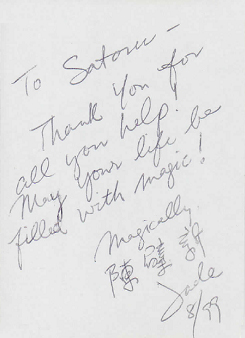 To Satoru —
Thank you for
all your help!
May your life be
filled with magic!
Magically
陳璧詩
Jade
8/99